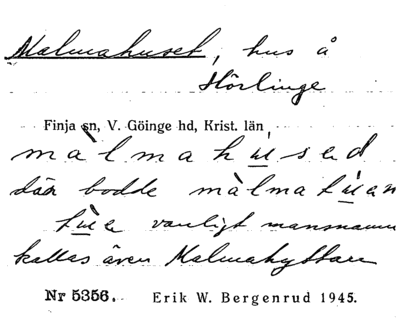 Malmahuset, hus å
Hörlinge
Finja sn, V. Göinge hd, Krist. län
màlmahu̲sed
där bodde màlmatú̲an
tù̲e vanligt mansnamn
kallas även Malmahyttan
Nr 5356. Erik W. Bergenrud 1945.